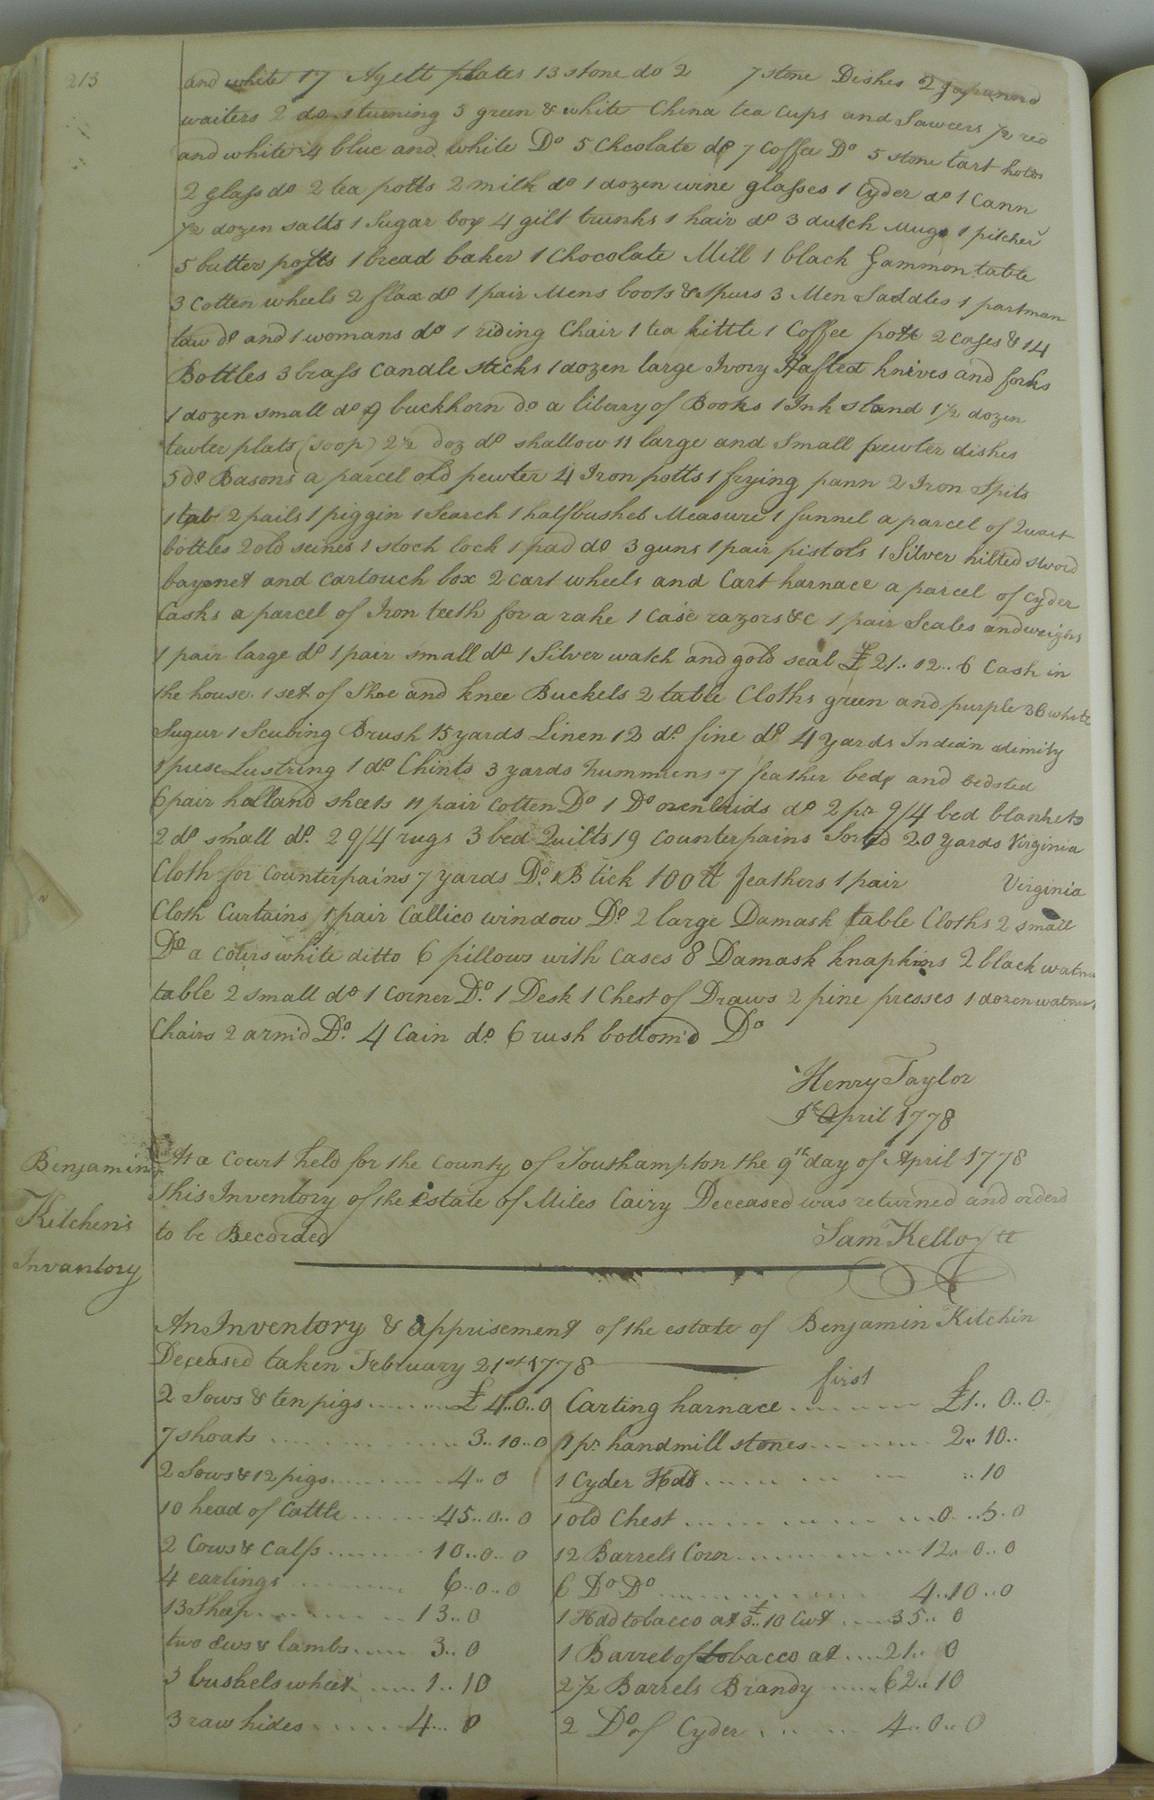 213
and white 17 Agett plates 13 stone do 2 7 stone Dishes 2 Japannd
waiters 2 do. 1 turning 5 green & white China tea Cups and Sawcers ½ red
and white 4 blue and white Do 5 Chcolate do 7 Coffee Do 5 stone tart
2 glass do 2 tea potts 2 milk do 1 dozen wine glasses 1 Cyder do 1 Cann
½ dozen salts 1 Sugar box 4 gilt trunks 1 hair do 3 dutch mugs 1 pitcher
5 butter potts 1 bread baker 1 Chocolate Mill 1 black Gammon table
3 Cotten wheels 2 flax do 1 pair Mens boots & Spurs 3 Men Saddles 1 portman
taw do and 1 womans do 1 riding Chair 1 tea kittle 1 Coffee pott 2 Cases & 14
Bottles 3 brass Candle sticks 1 dozen large Ivory Hafted knives and forks
1 dozen small do 9 buckhorn do a libery of Books 1 Ink stand 1½ dozen
pewter plats (soop) 2½ doz do shallow 11 large and Small pewter dishes
5 do Basons a parcel old pewter 4 Iron potts 1 frying pann 2 Iron Spits
1 tab 2 pails 1 piggin 1 Search 1 half bushel Measure 1 funnel a parcel of Quart
bottles 2 old seines 1 stock lock 1 pad do 3 guns 1 pair pistols 1 Silver hilted sword
bayonet and cartouch box 2 cart wheels and Cart harnace a parcel of Cyder
Casks a parcel of Iron teeth for a rake 1 Case razors &c 1 pair Scales and weights
1 pair large do 1 pair small do 1 Silver watch and gold seal £ 21.. 12.. 6 Cash in
the house 1 set of Shoe and knee Buckels 2 table Cloths green and purple 36 white
Sugur 1 Scubing Brush 15 yards Linen 12 do. fine do 4 yards Indian dimity
1 piese Lustring 1 do Chints 3 yards hummums 7 feather beds and bedsted
6 pair halland sheets 11 pair cotten Do 1 Do ozenbrids do 2 pr. 9/4 bed blankets
2 do small do. 2 9/4 rugs 3 bed Quilts 19 Counterpains Sorted 20 yards Virginia
Cloth for Counterpains 7 yards Do. B tick 100 lb feathers 1 pair Virginia
Cloth Curtains 1 pair Callico window Do. 2 large Damask table Cloths 2 small
Do a white ditto 6 pillows with Cases 8 Damask knapkins 2 black
table 2 small do 1 corner Do. 1 Desk 1 Chest of Draws 2 pine presses 1 dozen
Chairs 2 arm'd Do. 4 Cain do. 6 rush bottom'd Do
Henry Taylor
April 1778
At a Court held for the County of Southampton the 9th day of April 1778
this Inventory of the Estate of Miles Cairy Deceased was returned and orderd
to be Recorded
Sam Kello
Benjamin
Kitchen's
Invantory
An Inventory & apprisement of the estate of Benjamin Kitchin
Deceased taken February 21st 1778
first
2 Sows & ten pigs £ 4..0..0
7 shoats 3..10..0
2 Sows & 12 pigs 4..0
10 head of Cattle 45..0..0
2 Cows & Calfs 10..0..0
4 earlings 6..0..0
13 Sheep 13..0
two Ews & lambs 3..0
3 bushels wheet 1..10
3 raw hides 4..0
Carting harnace £1..0..0
1 pr. handmill stones 2..10..
1 Cyder Hdd ..10
1 old Chest 0..5..0
12 Barrels Corn 12..0..0
6 Do Do 4..10..0
1 Hdd tobacco at £3..10 Cwt 35..0
1 Barrel of tobacco at 21..0
2½ Barrels Brandy 62..10
2 Do of Cyder 4..0..0